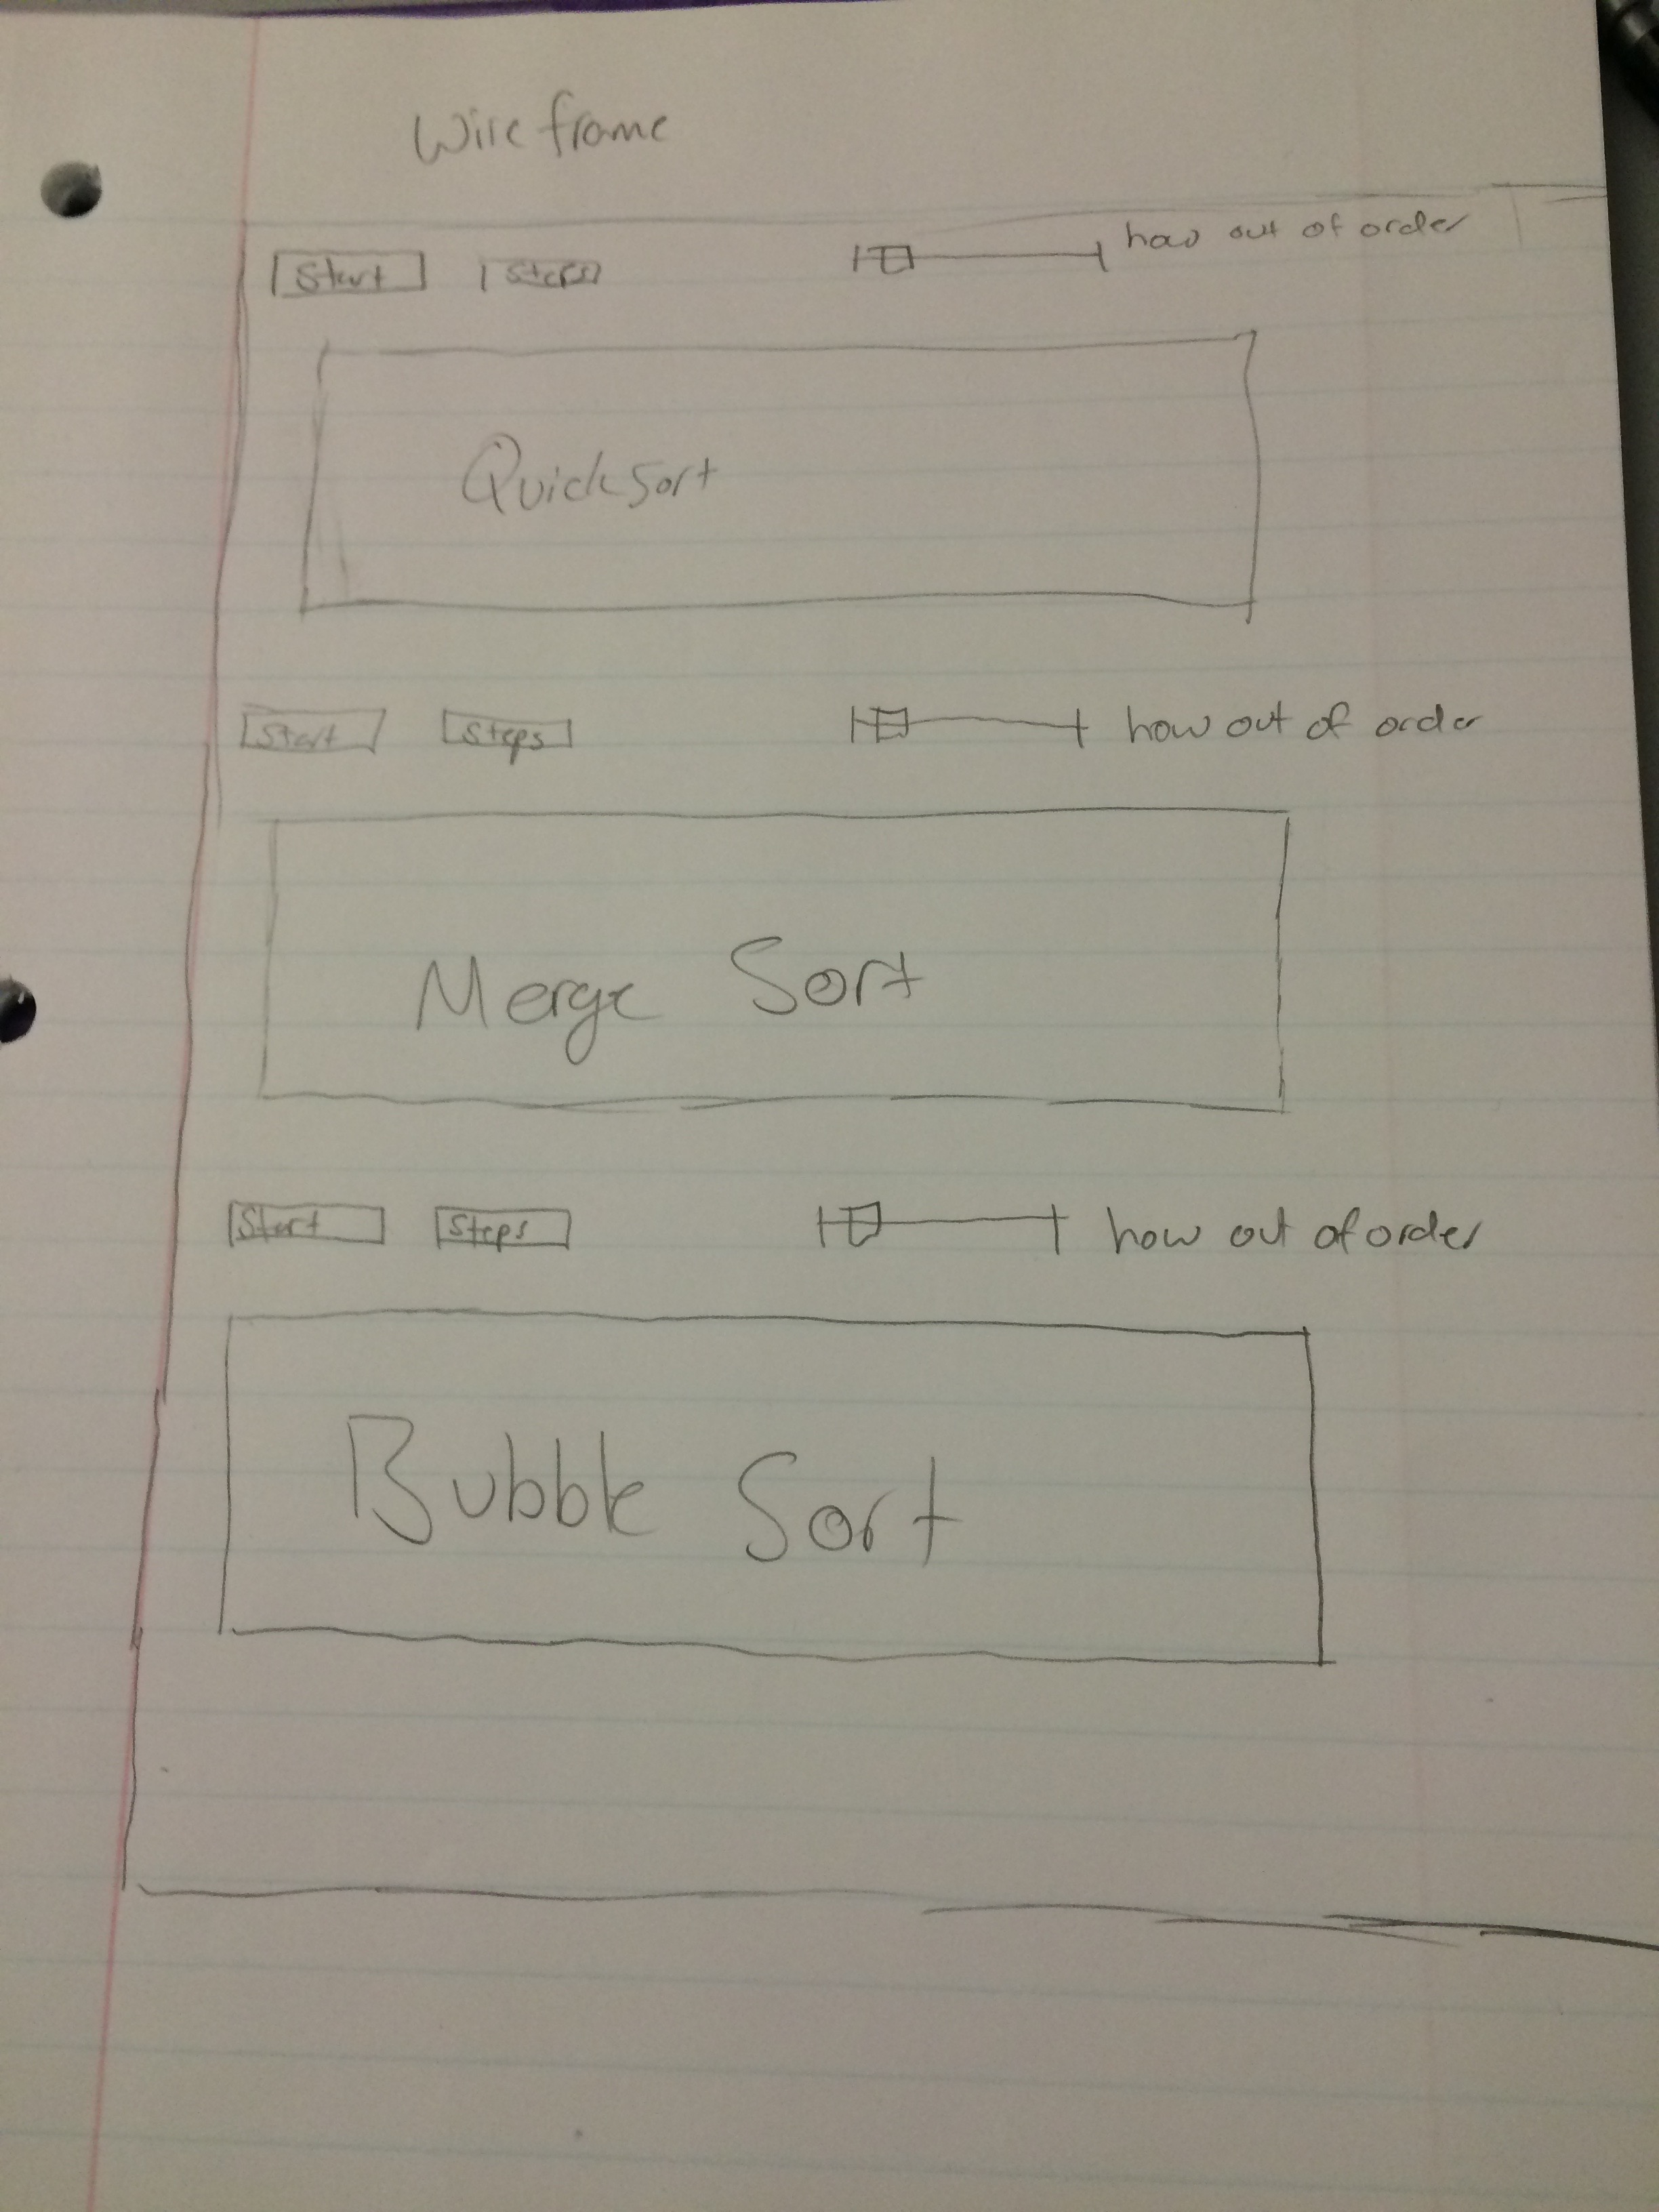 Wire frame
Start Steps how out of order
Quick Sort
Start Steps how out of order
Merge Sort
Start Steps how out of order
Bubble Sort